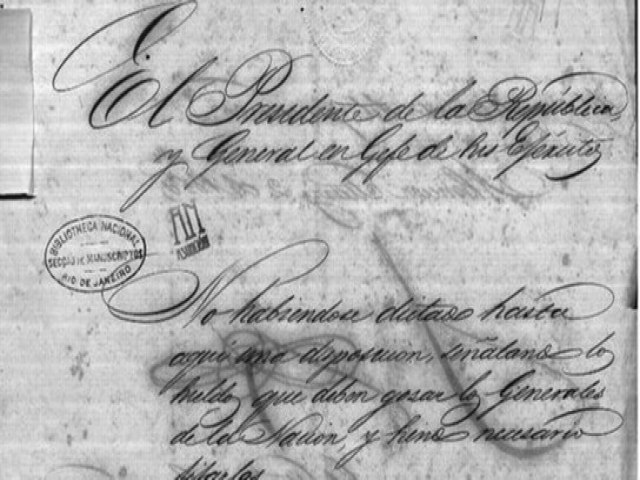 El Presidente de la República
y General en Gefe de sus Exércitos
BIBLIOTHECA NACIONAL
SECÇÃO DE MANUSCRIPTOS
RIO DE JANEIRO
ASUNCION
No habiendose dictado hasta
aqui una disposicion, señalando lo
sueldos que deben gosar los Generales
de la Nacion, y siendo necesario